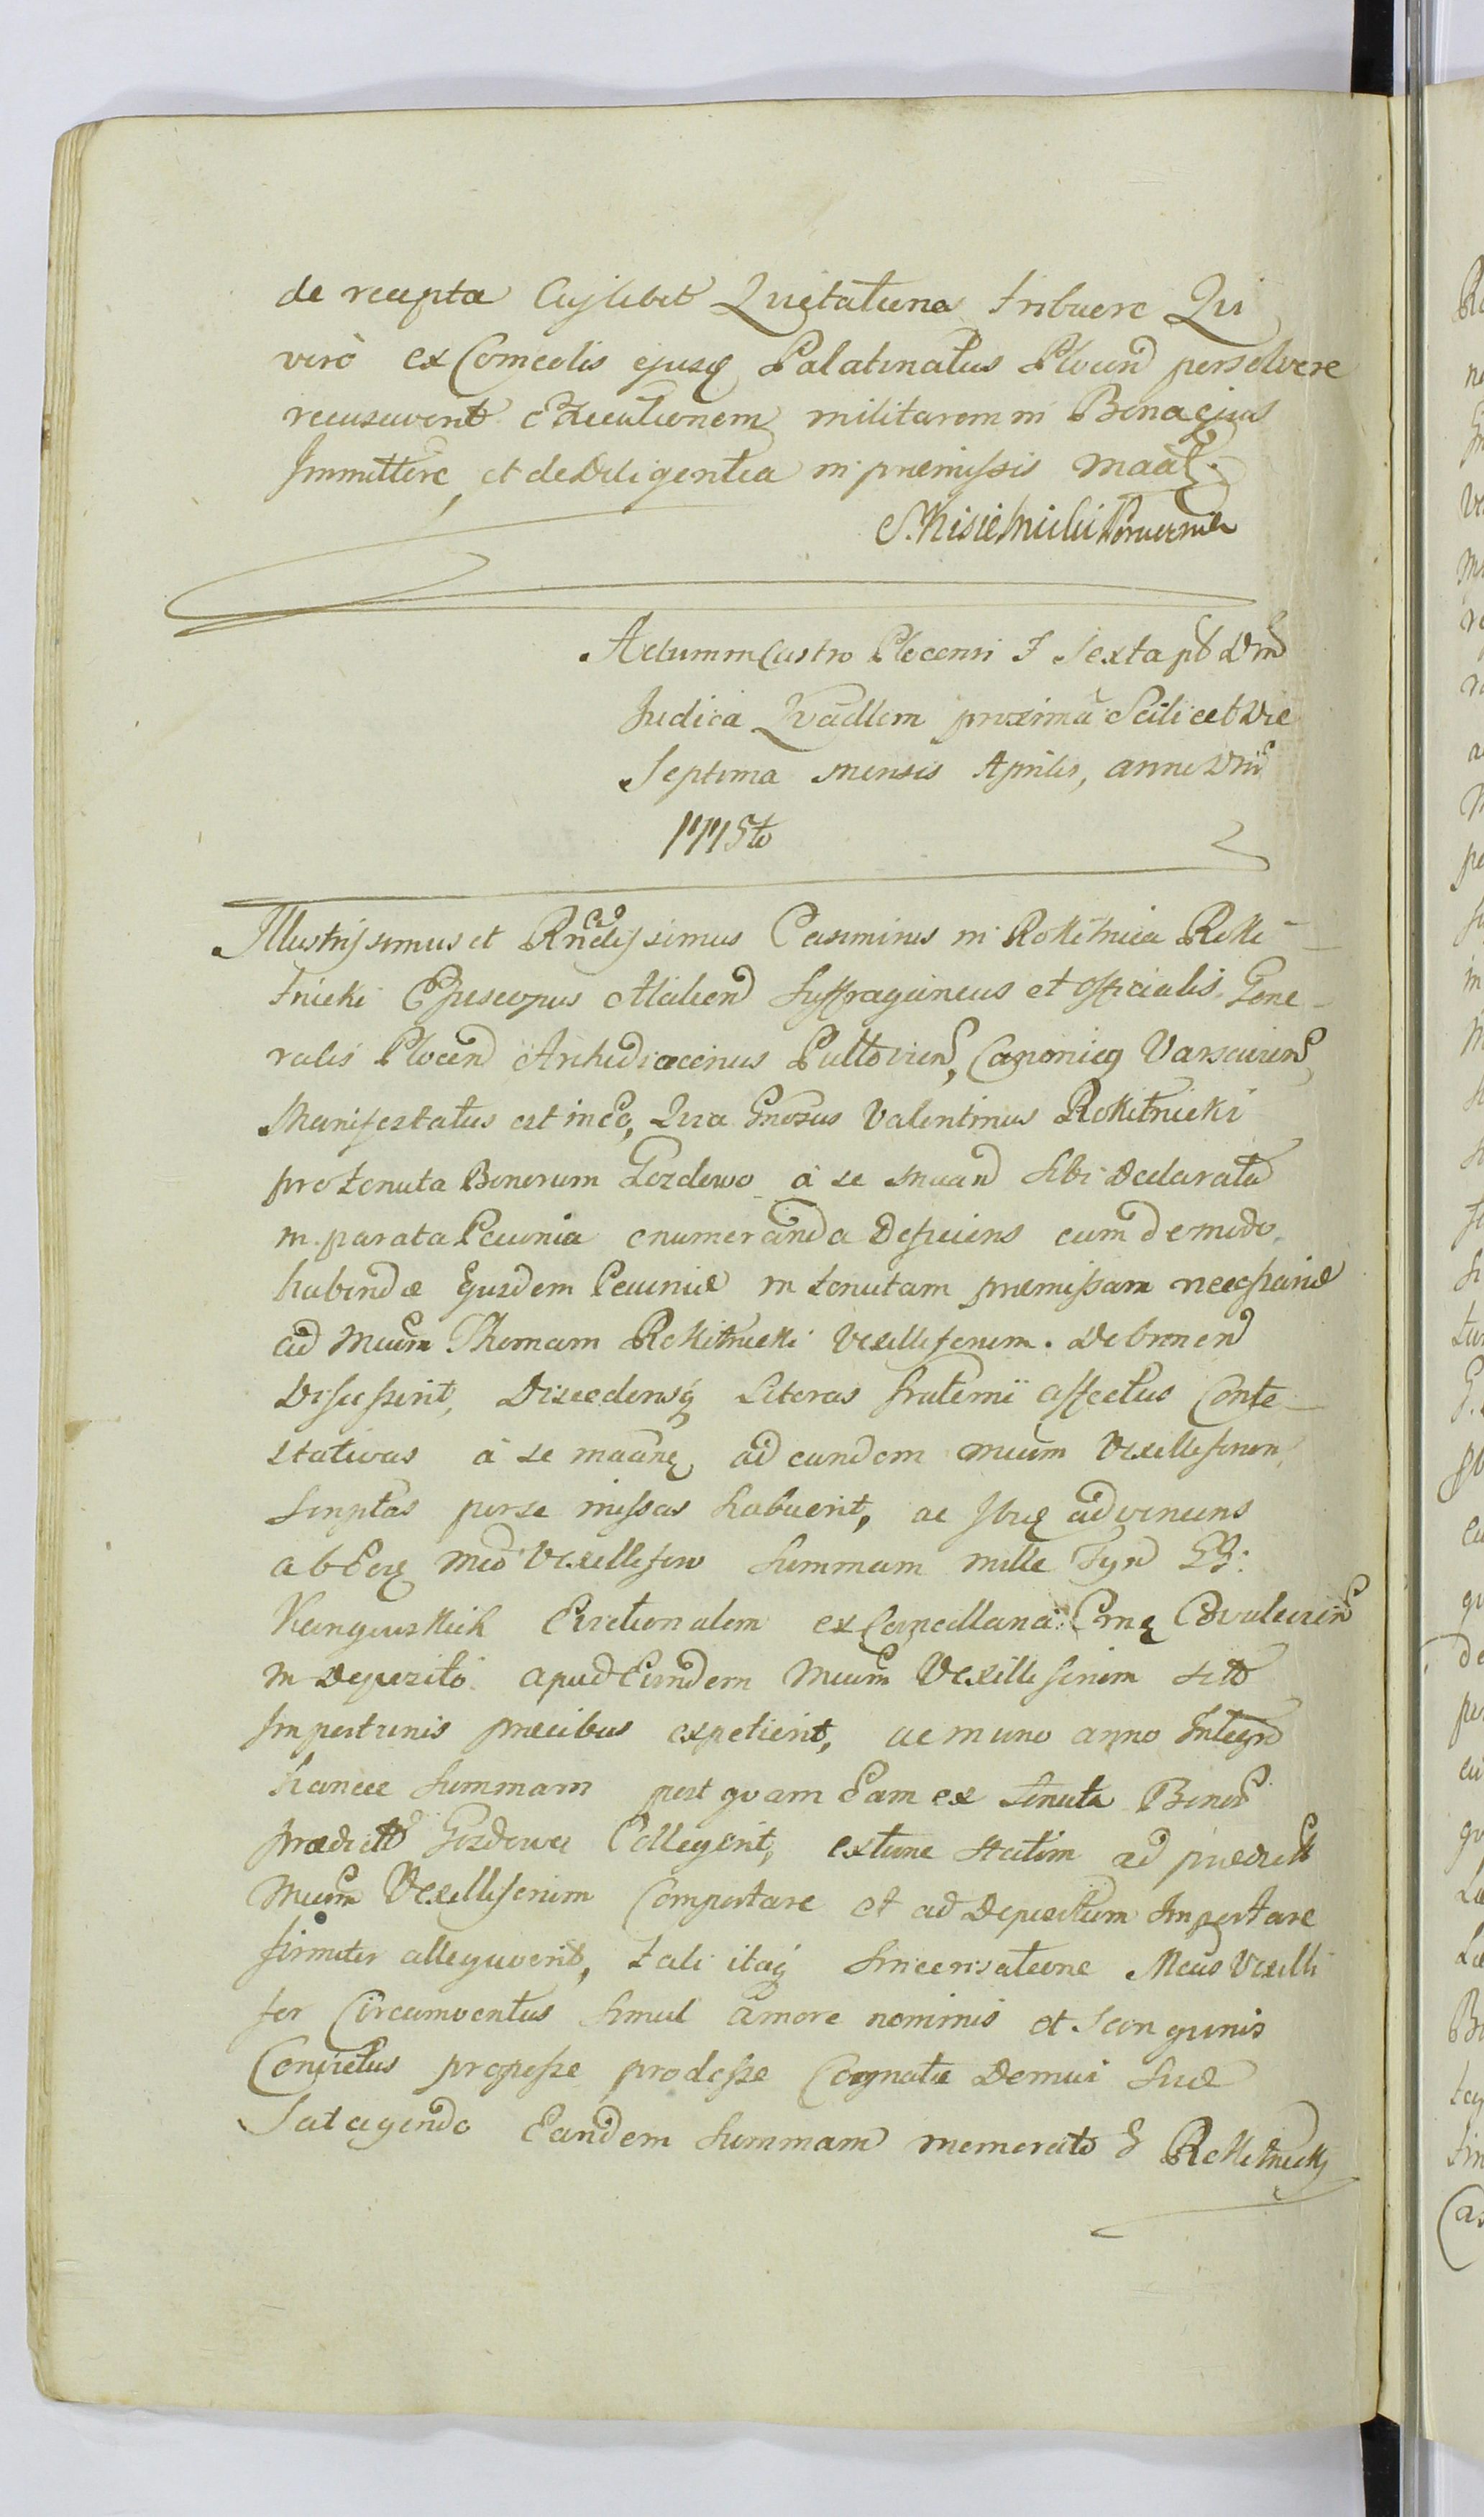 de recepta Cujslibet Quietationes tribuere Qui
verò ex Comcolis ejusq Palatinatus Plocen persolvere
recusaverit Executionem militarem in Bona ejus
Immittere, et de Diligentia in praemissis maal
Actum in Castro Plocensi F Sexta pt Dm
Judica Quadlem proxima Scilicet Die
Septima mensis Aprilis, anno Dni
1775to
Illustrissimus et Rndissimus Casimirus in Rokitnica Roki
tnicki Episcopus Suffraganeus et Officialis Gene-
ralis Plocen Archidiaconus Pultovien, Canonicq Varsavien
Manifestatus est in eo, Quia Gnosus Valentinus Rokitnicki
pro tenuta Bonorum Gozdowo à se maan sibi Declarata
in parata Pecunia enumeranda Deficiens eum de modo
habendae Ejusdem Pecuniae in tenutam praemissam necessariae
ad Mcum Thomam Rokitnicki Vexilliferum Dobrinen
Discesserit, Discedensq Literas fraterni affectus Conte
stativas à se maane ad eundem Mcum Vexilliferum
Scriptas per se missas habuerit, ac Ibiq adveniens
ab Eoq Mco Vexillifero Summam mille Tyn GG:
Evictionalem ex Cancellaria
in Deposito apud Eundem Mcum Vexilliferum
Importunis praecibus expetierit, ac in uno anno Integro
hancce Summam post quam Eam ex tenuta Bonor
praedicto Gozdowo Collegerit, extunc statim ad praedictt
Mcum Vexilliferum Comportare et ad Depositum Importare
firmiter allegaverit, tali itaq Sincerisatione Mcus Vexilli
fer Circumventus Simul amore nominis et Sanguinis
Convictus propesse prodesse Cognatae Domui Suae
Satagendo Eandem Summam memorato G Rokitnicki